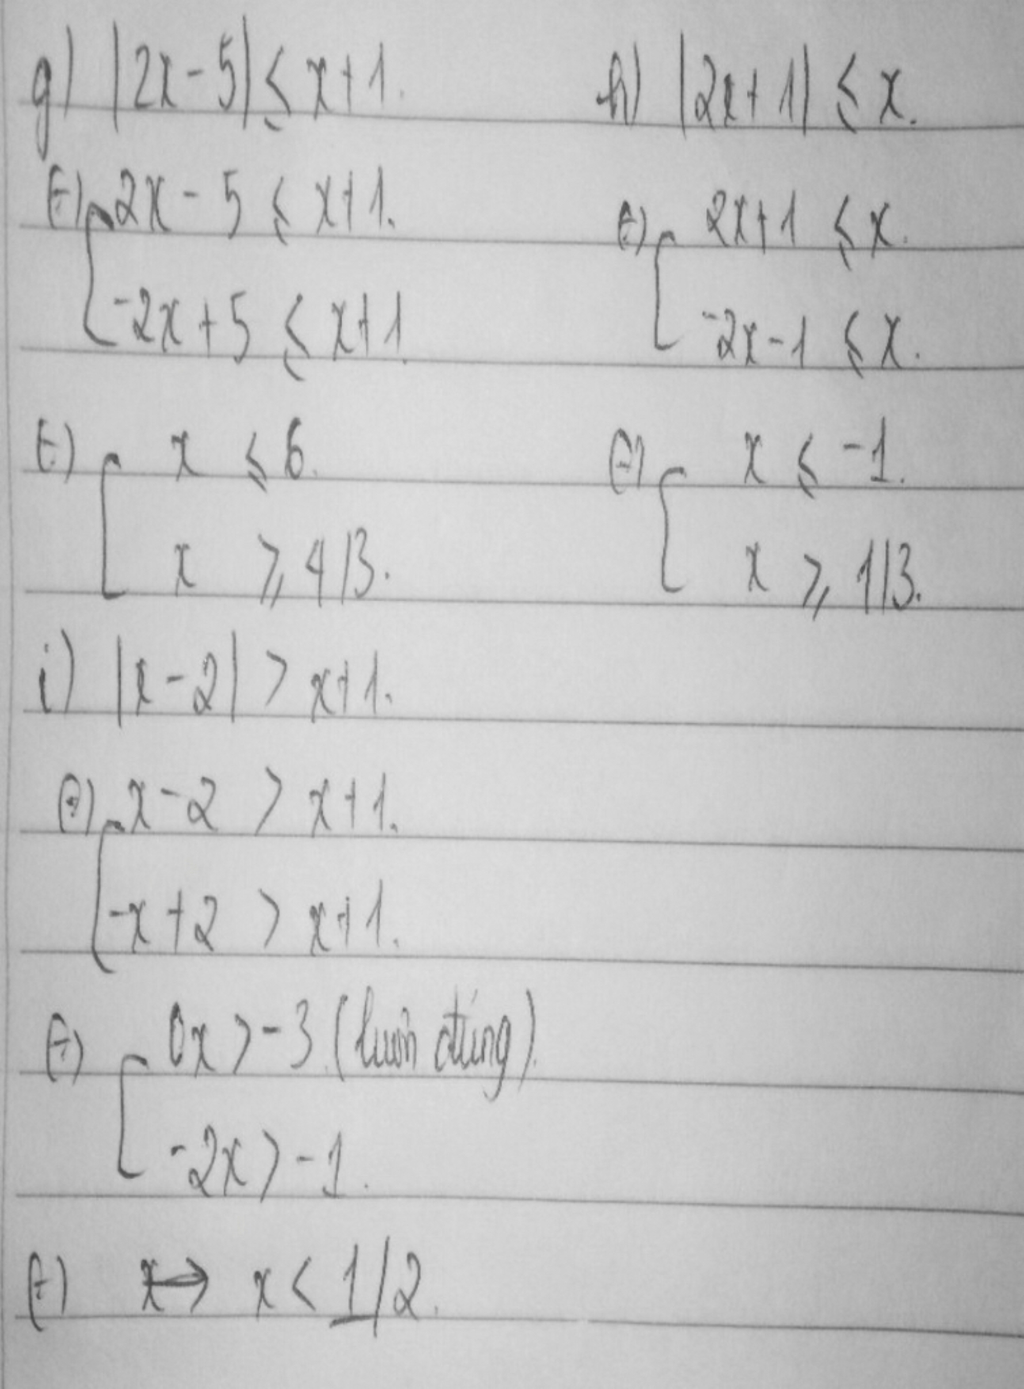 g) |2x-5| ⩽ x+1.
h) |2x+1| ⩽ x.
⇔ [ 2x-5 ⩽ x+1.
-2x+5 ⩽ x+1
⇔ [ 2x+1 ⩽ x.
-2x-1 ⩽ x.
⇔ [ x ⩽ 6.
x ⩾ 4/3.
⇔ [ x ⩽ -1.
x ⩾ 1/3.
i) |x-2| > x+1.
⇔ [ x-2 > x+1.
-x+2 > x+1.
⇔ [ 0x > -3 (luôn đúng).
-2x > -1.
⇔ x < 1/2.